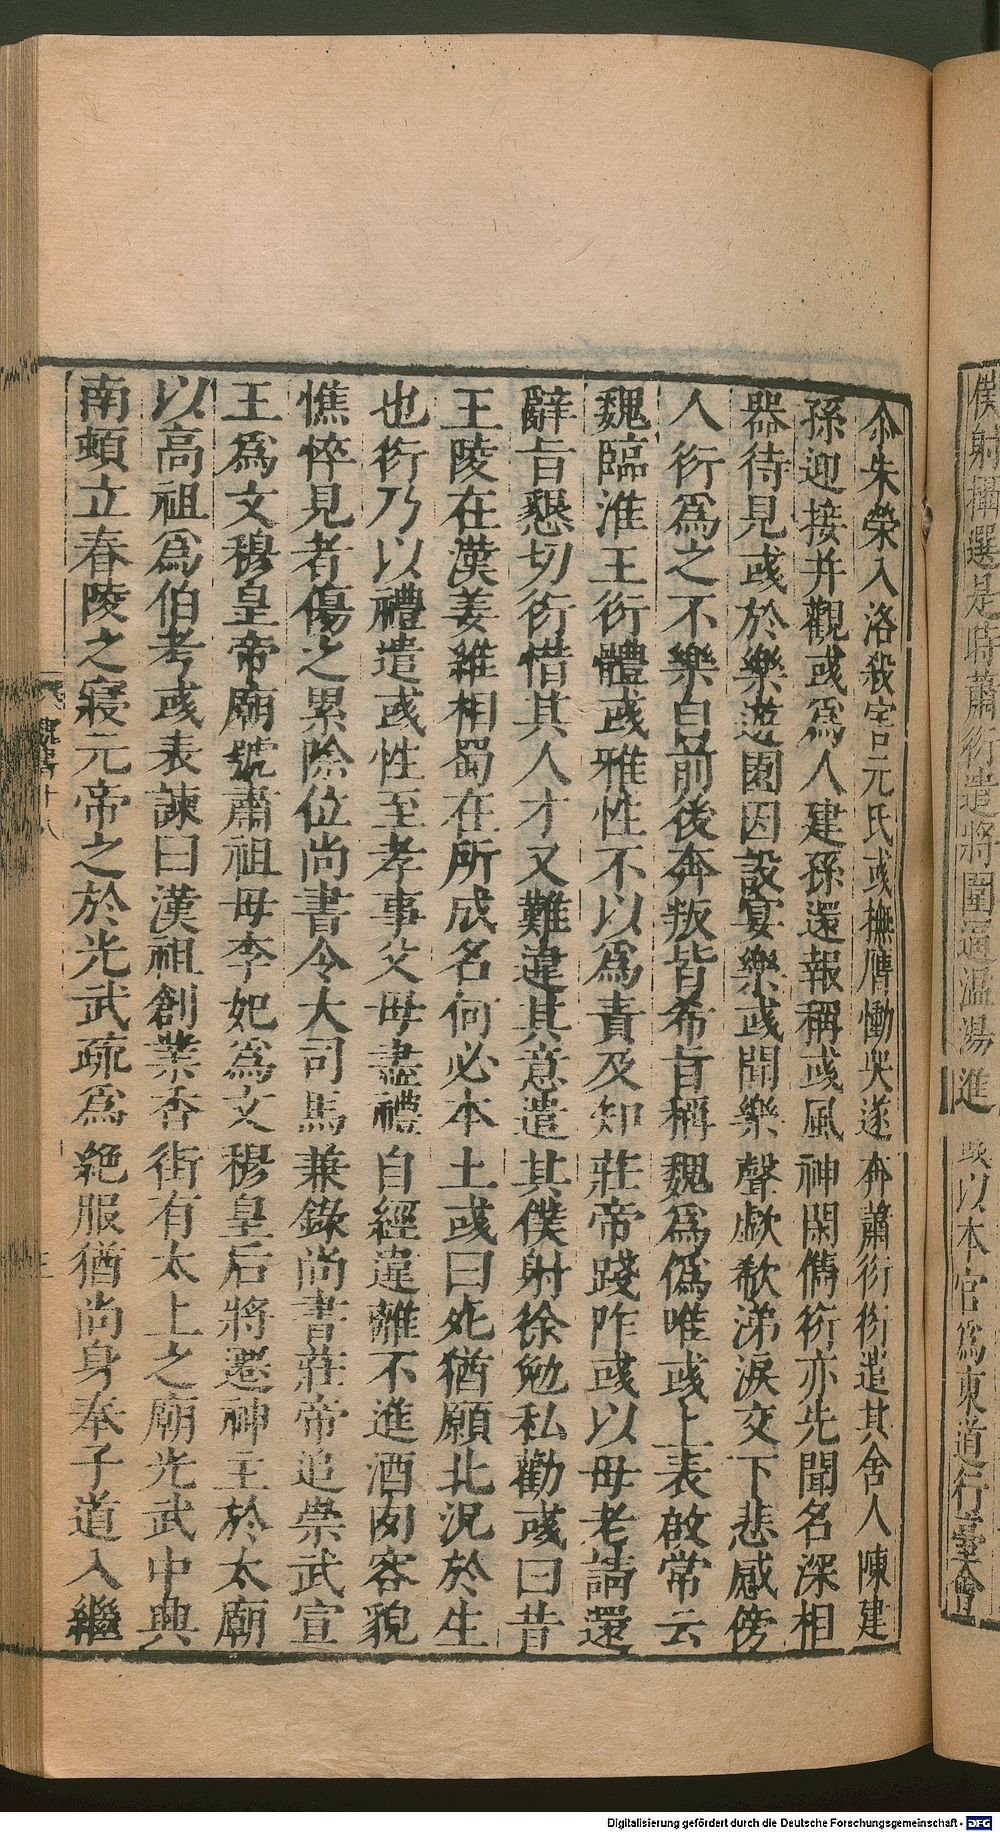 僕射攝選是時蕭衍遣將圍逼溫湯進彧以本官爲東道行臺會
尒朱榮入洛殺害元氏彧撫膺慟哭遂奔蕭衍衍遣其舍人陳建
孫迎接并觀彧爲人建孫還報稱彧風神閑儁衍亦先聞名深相
器待見彧於樂遊園因設宴樂彧聞樂聲歔欷涕淚交下悲感傍
人衍爲之不樂自前後奔叛皆希旨稱魏爲僞唯彧上表啟常云
魏臨淮王衍體彧雅性不以爲責及知莊帝踐阼彧以母老請還
辭旨懇切衍惜其人才又難違其意遣其僕射徐勉私勸彧曰昔
王陵在漢姜維相蜀在所成名何必本土彧曰死猶願北況於生
也衍乃以禮遣彧性至孝事父母盡禮自經違離不進酒肉容貌
憔悴見者傷之累除位尚書令大司馬兼錄尚書莊帝追崇武宣
王爲文穆皇帝廟號肅祖母李妃爲文穆皇后將遷神主於太廟
以高祖爲伯考彧表諫曰漢祖創業香街有太上之廟光武中興
南頓立春陵之寢元帝之於光武疏爲絕服猶尚身奉子道入繼
魏書十八
Digitalisierung gefördert durch die Deutsche Forschungsgemeinschaft - DFG